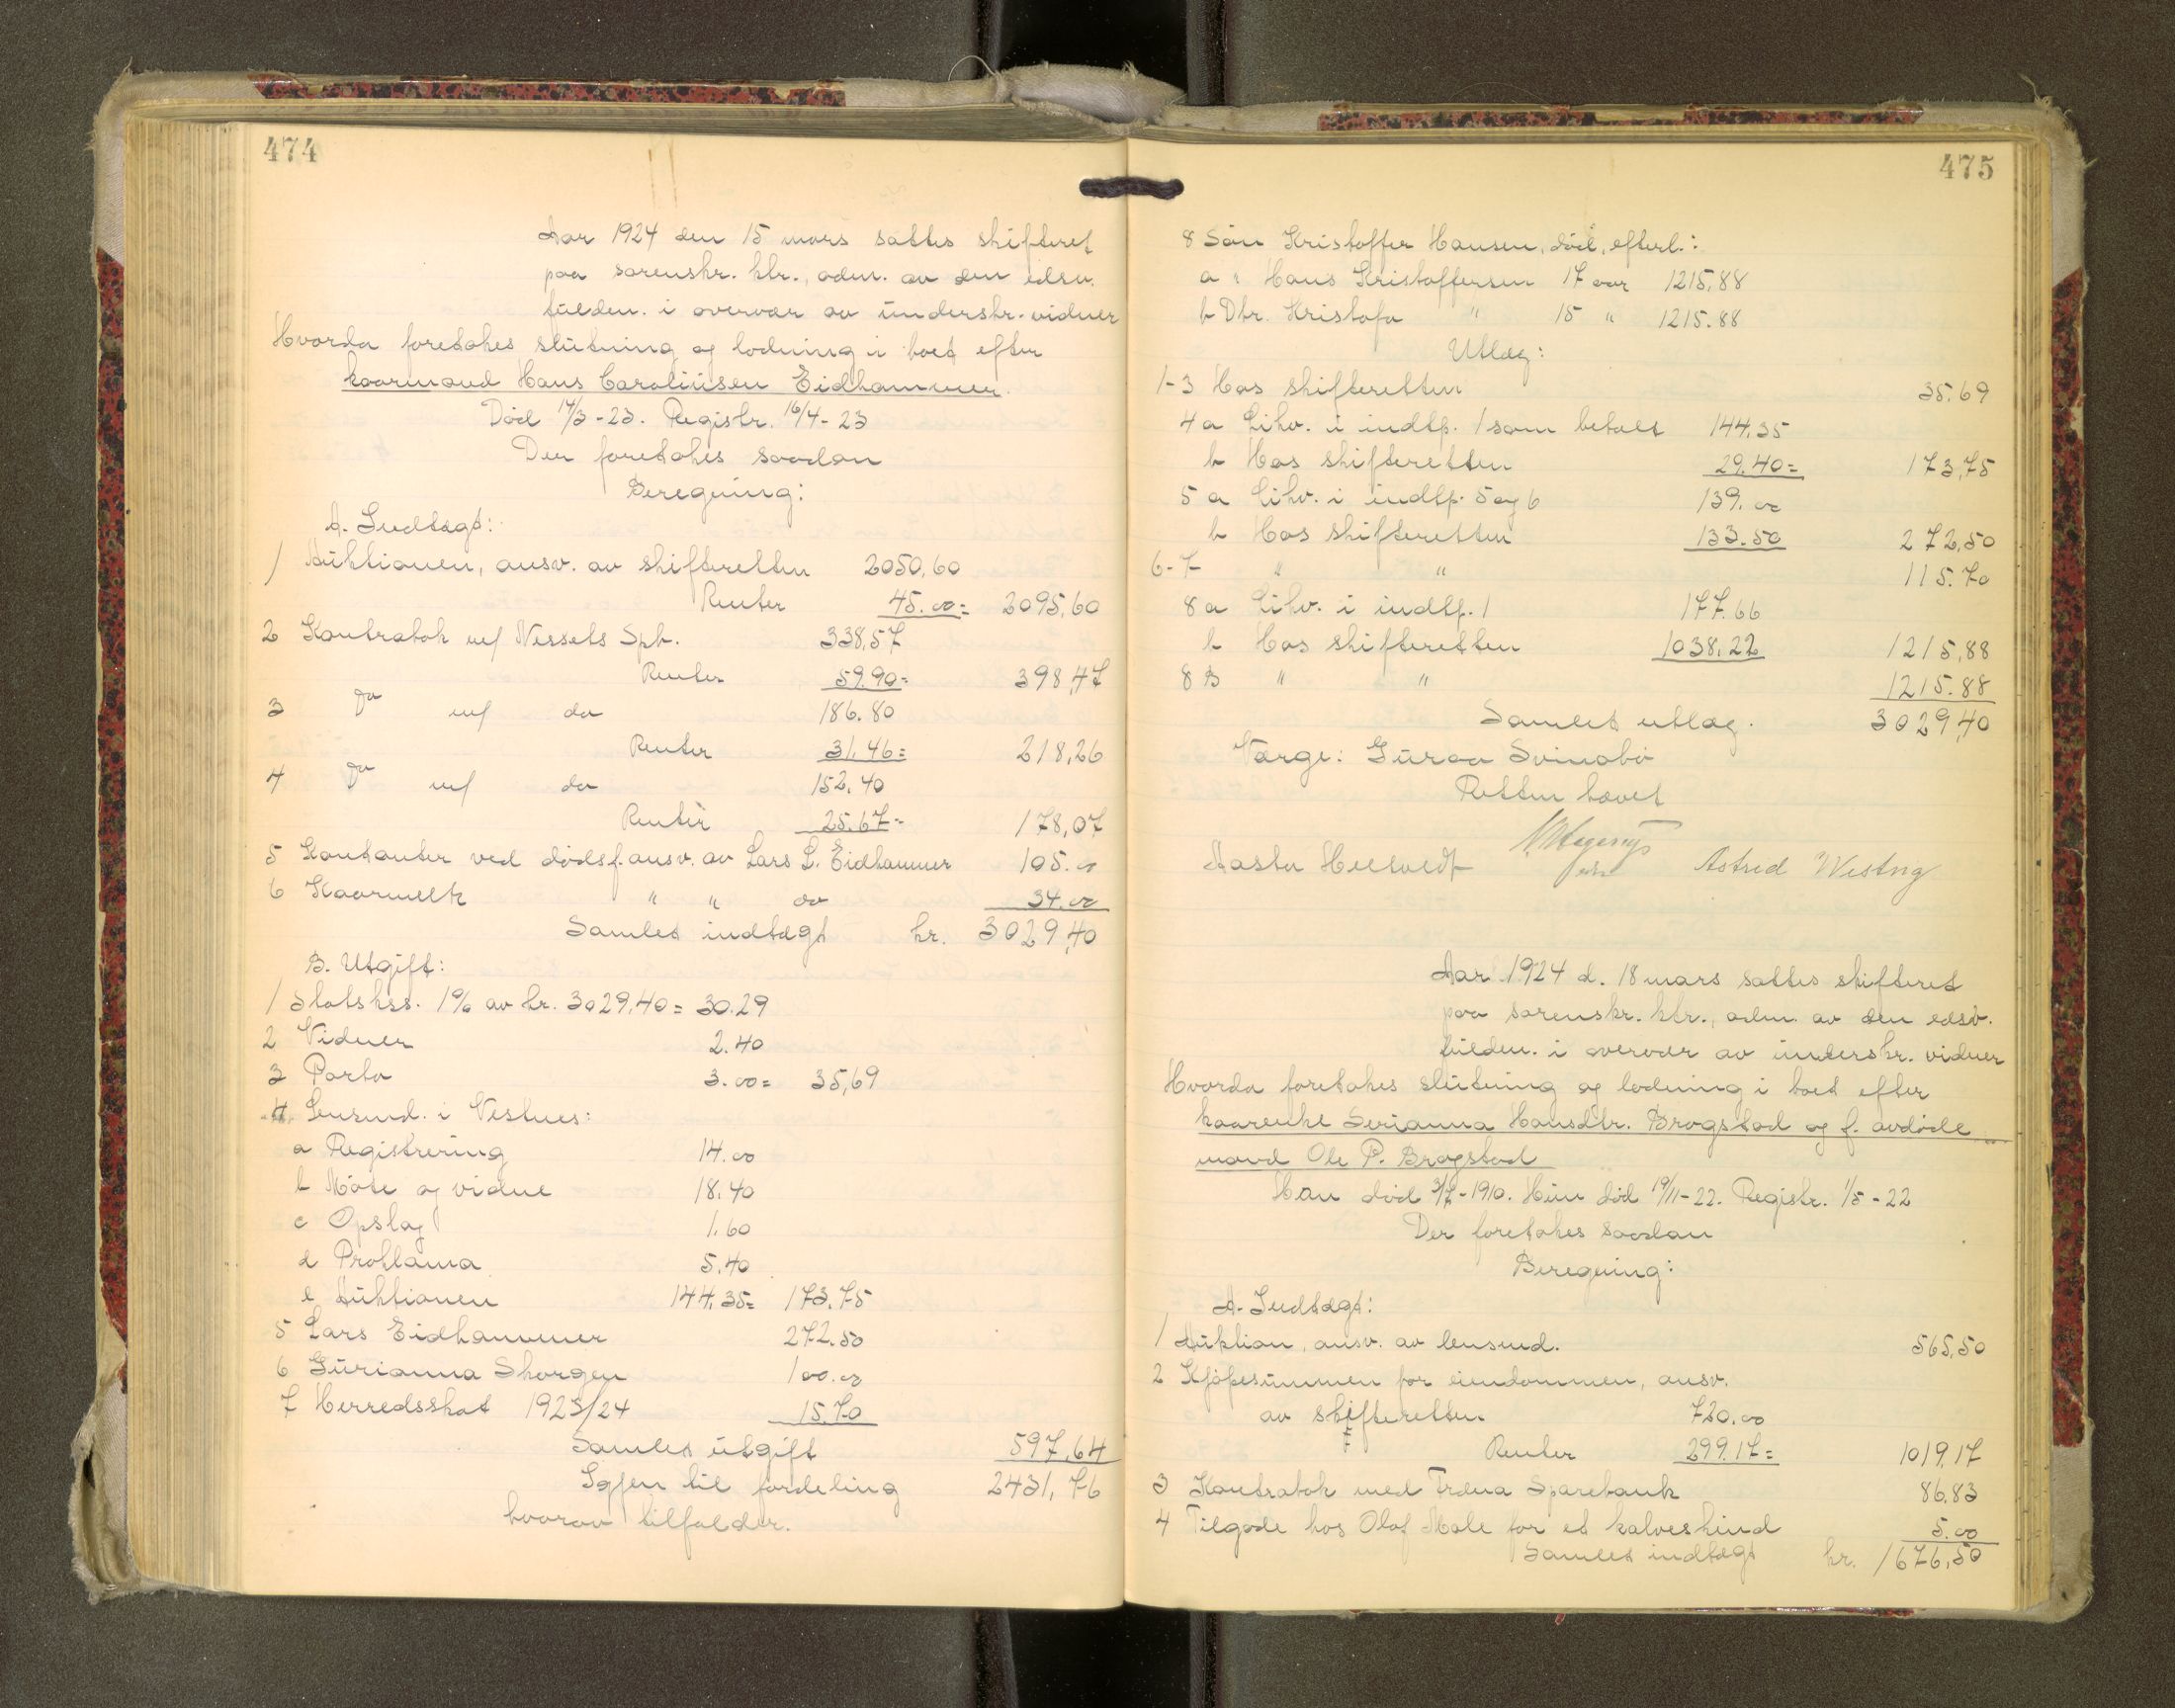 474
Aar 1924 den 15 mars sattes skifteret
paa sorenskr. ktr., adm. av den edsv.
fuldm. i overvær av underskr. vidner
Hvorda foretokes slutning og lodning i boet efter
kaarmand Hans Caroliusen Eidhammer.
Død 14/3-23. Registr. 16/4-23
Der foretokes saadan
Beregning:
A. Indtægt:
1 Auktionen, ansv. av skifteretten 2050,60
Renter 45.00= 2095,60
2 Kontrabok m/ Nessets Spb. 338,57
Renter 59.90= 398,47
3 Do m/ do 186.80
Renter 31.46= 218,26
4 Do m/ do 152.40
Renter 25.67= 178,07
5 Kontanter ved dødsf. ansv. av Lars L. Eidhammer 105.00
6 Kaarmelk " " do 34.00
Samlet indtægt kr. 3029,40
B. Utgift:
1 Statskss. 1% av kr. 3029,40= 30.29
2 Vidner 2.40
3 Porto 3.00= 35,69
4 Lensmd. i Vestnes:
a Registrering 14.00
b Møte og vidne 18.40
c Opslag 1.60
d Proklama 5.40
e Auktionen 144.35= 173.75
5 Lars Eidhammer 272.50
6 Gurianna Skorgen 100.00
7 Herredsskat 1923/24 15.70
Samlet utgift 597,64
Igjen til fordeling 2431,76
hvorav tilfalder.
475
8 Søn Kristoffer Hansen, død, efterl.:
a " Hans Kristoffersen 17 aar 1215,88
b Dtr. Kristofa " 15 " 1215.88
Utlæg:
1-3 Hos skifteretten 35.69
4 a Likv. i indtp. 1 som betalt 144,35
b Hos skifteretten 29.40= 173,75
5 a Likv. i indtp. 5 og 6 139.00
b Hos skifteretten 133.50 272,50
6-7 " " 115.70
8 a Likv. i indtp. 1 177.66
b Hos skifteretten 1038,22 1215,88
8 B " " 1215.88
Samlet utlæg. 3029,40
Værge: Guroa Svinobø
Retten hævet
Aasta Astrid Westvig
Aar 1924 d. 18 mars sattes skifteret
paa sorenskr. ktr., adm. av den edsv.
fuldm. i overvær av underskr. vidner
Hvorda foretokes slutning og lodning i boet efter
kaarenke Serianna Hansdtr. Brogstad og f. avdøde
mand Ole P. Brogstad
Han død 3/7-1910. Hun død 19/11-22. Registr. 1/5-22
Der foretokes saadan
Beregning:
A. Indtægt:
1 Auktion, ansv. av lensmd. 565,50
2 Kjøpesummen for eiendommen, ansv.
av skifteretten 720.00
Renter 299.17= 1019,17
3 Kontrabok med Fræna Sparebank 86,83
4 Tilgode hos Olaf Male for et kalveskind 5.00
Samlet indtægt kr. 1676,50